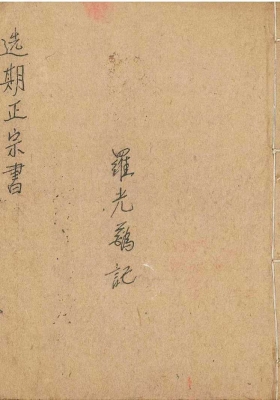 选期正宗書
羅光鷄記